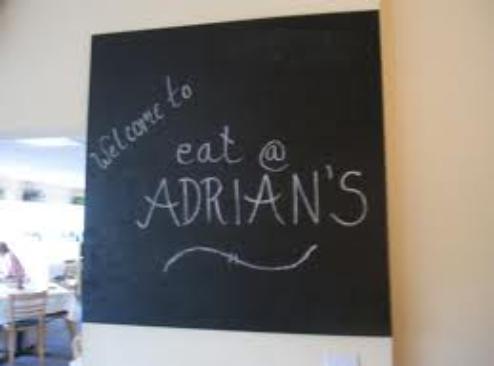 Welcome to
eat @
ADRIAN'S